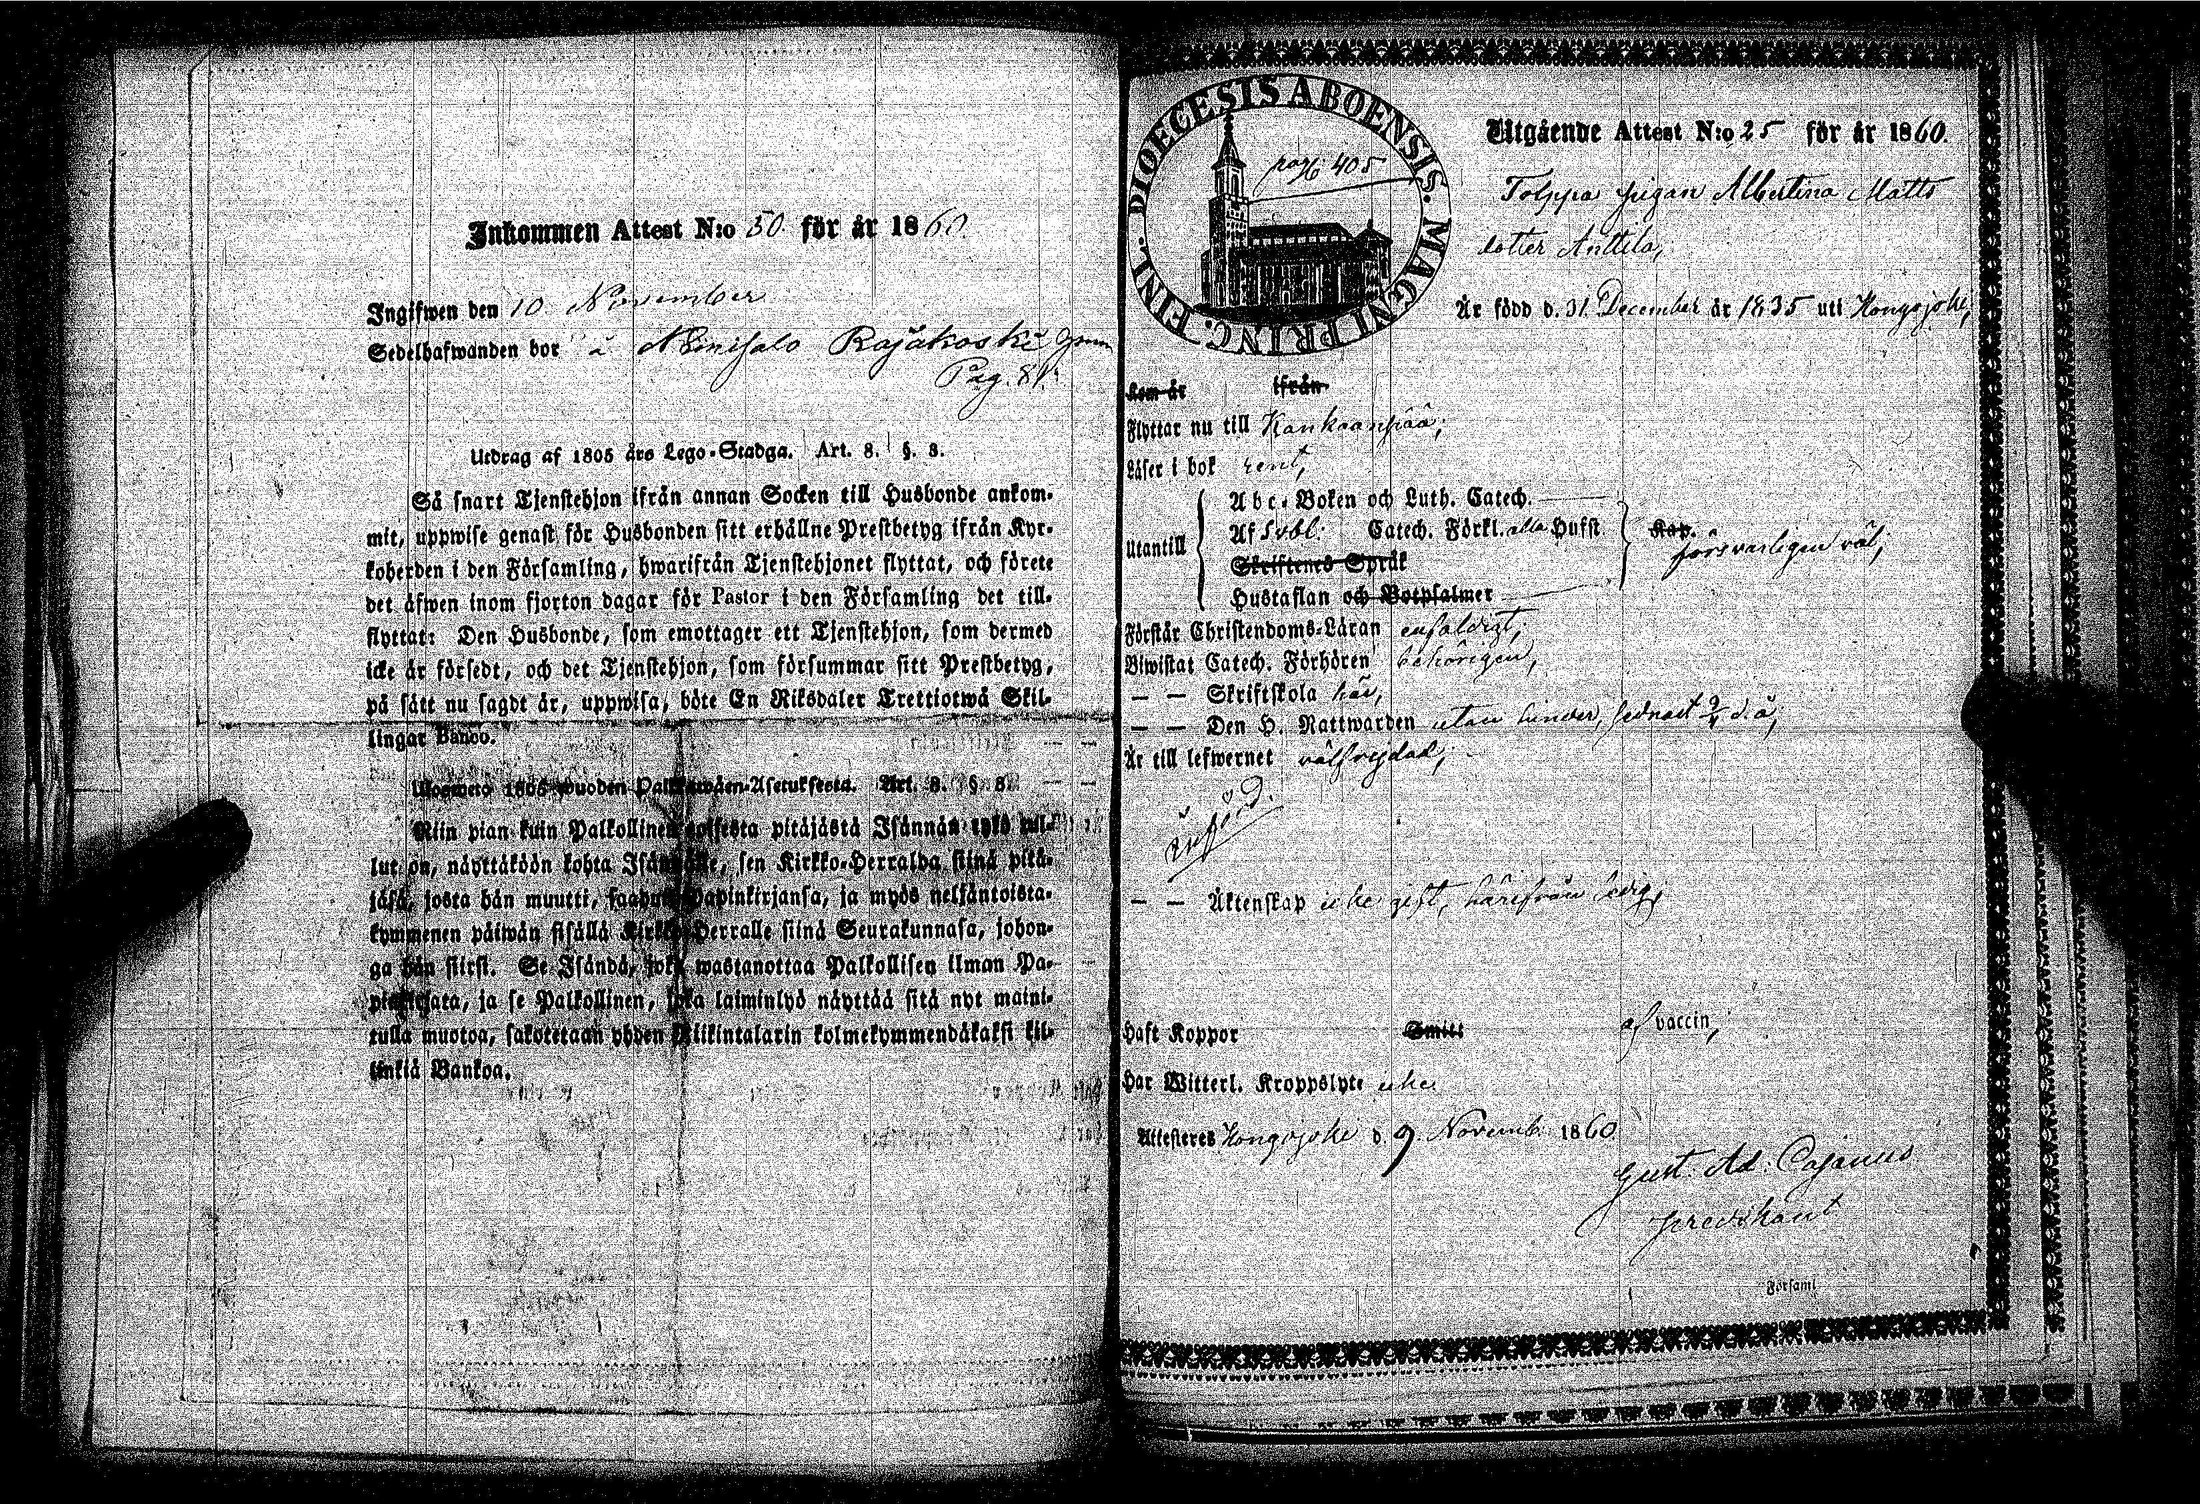 Inkommen Attest N:o 50 för år 1860.
Ingifwen den 10 November
Sedelhafwanden bor å Niinisalo Rajakoski
Pag. 81.
Utdrag af 1805 års Lego-Stadga. Art. 8. §. 3.
Så snart Tjenstehjon ifrån annan Socken till Husbonde ankom-
mit, uppwise genast för Husbonden sitt erhållne Prestbetyg ifrån Kyr-
koherden i den Församling, hwarifrån Tjenstehjonet flyttat, och förete
det äfwen inom fjorton dagar för Pastor i den Församling det till-
flyttat: Den Husbonde, som emottager ett Tjenstehjon, som dermed
icke är försedt, och det Tjenstehjon, som försummar sitt Prestbetyg,
på sätt nu sagdt är, uppwisa, böte En Riksdaler Trettiotwå Skil-
lingar Banco.
Ulosweto 1805 wuoden Palkkawäen-Asetuksesta. Art. 8. § 3.
Niin pian kuin Palkollinen toisesta pitäjästä Isännän tykö tul-
lut on, näyttäköön kohta Isännälle, sen Kirkko-Herralda siinä pitä-
jäsä, josta hän muutti, saadun Papinkirjansa, ja myös neljäntoista-
kymmenen päiwän sisällä Kirkko-Herralle siinä Seurakunnasa, johon-
ga hän siirsi. Se Isändä, joka wastanottaa Palkollisen ilman Pa-
pinkirjata, ja se Palkollinen, joka laiminlyö näyttää sitä nyt maini-
tulla muotoa, sakotetaan yhden Riikintalarin kolmekymmendäkaksi kil-
linkiä Bankoa.
DIOECESIS ABOENSIS. MAGNI PRINC. FINL.
pag 405
Utgående Attest N:o 25 för år 1860.
Torppa pigan Albertina Matts
dotter Anttila,
Är född d. 31 December år 1835 uti Hongojoki,
Kom år ifrån
Flyttar nu till Kankaanpää,
Läser i bok rent,
Utantill
Abc-Boken och Luth. Catech.
Af Svbl. Catech. Förkl. alla Hufst Kap. försvarligen väl,
Skriftenes Språk
Hustaflan och Botpsalmer
Förstår Christendoms-Läran enfaldigt,
Biwistat Catech. Förhören behörigen,
— — Skriftskola här,
— — Den H. Nattwarden utan hinder, sednast 9/4 d. å,
Är till lefwernet välfrejdad,
Införd.
— — Äktenskap icke gift, härifrån ledig,
Haft Koppor Smitt af vaccin,
Har Witterl. Kroppslyte icke.
Attesteres Hongojoki d. 9. Novemb. 1860
Gust. Ad. Cajanus
predikant
Församl.